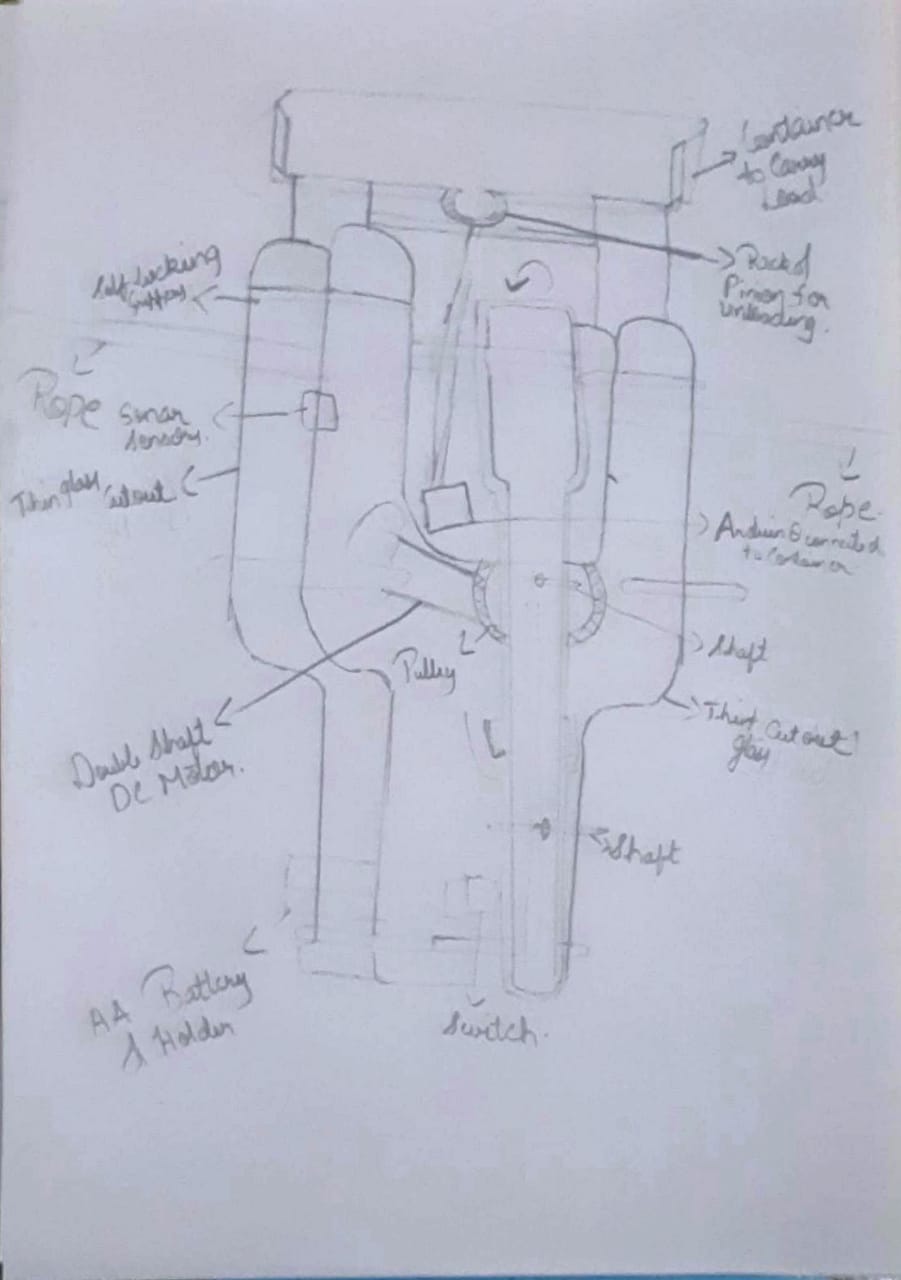 Container
to Carry
Load
Rack &
Pinion for
unloading.
Self locking
Rope
sonar
sensors.
Thin glass
cut out
Rope.
Arduino connected
to Container
Shaft
Pulley
Thin cut out
glass
Double Shaft
DC Motor.
Shaft
AA Battery
& Holder
Switch.